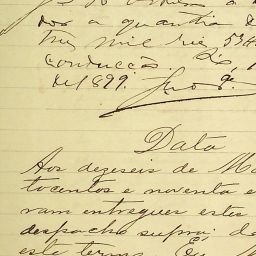 dos a quantia d
Tres mil reis 5$4
conducção
de 1899.
Data
Aos dezeseis de Ma
tocentos e noventa e
ram entregues estes
despacho supra; do
este termo. Eu